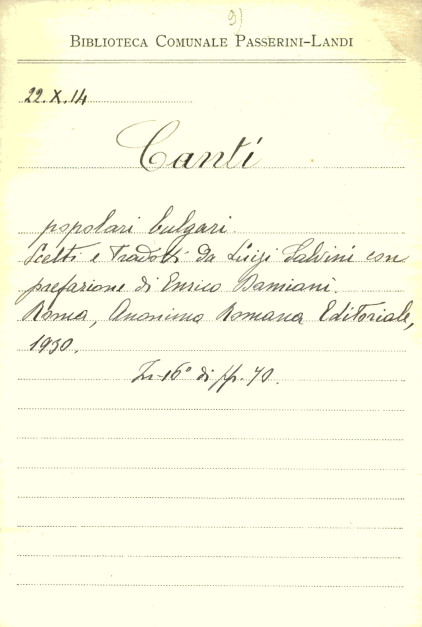 9)
BIBLIOTECA COMUNALE PASSERINI-LANDI
22.X.14
Canti
popolari bulgari.
Scelti e tradotti da Luigi Salvini con
prefazione di Enrico Damiani.
Roma, Anonima Romana Editoriale,
1930.
In-16° di pp. 70.